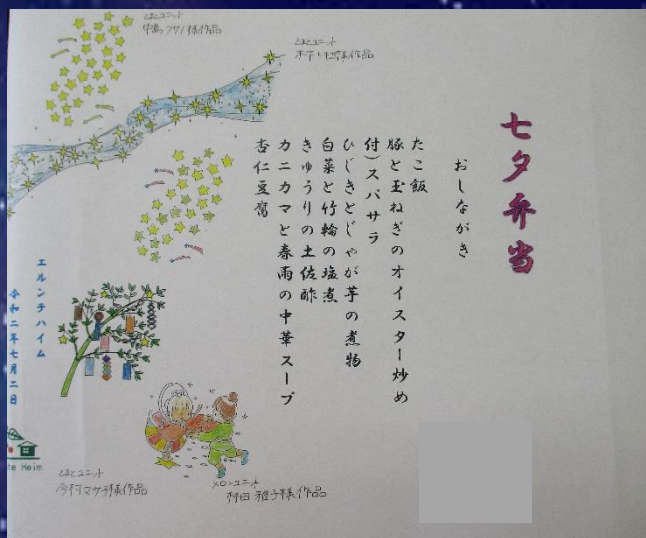 七夕弁当
おしながき
たこ飯
豚と玉ねぎのオイスター炒め
付）スパサラ
ひじきとじゃが芋の煮物
白菜と竹輪の塩煮
きゅうりの土佐酢
カニカマと春雨の中華スープ
杏仁豆腐
とまとユニット
とまとユニット
エルンテハイム
令和二年七月二日
te Heim
とまとユニット
今村マサ子様作品
メロンユニット
村田雅子様作品